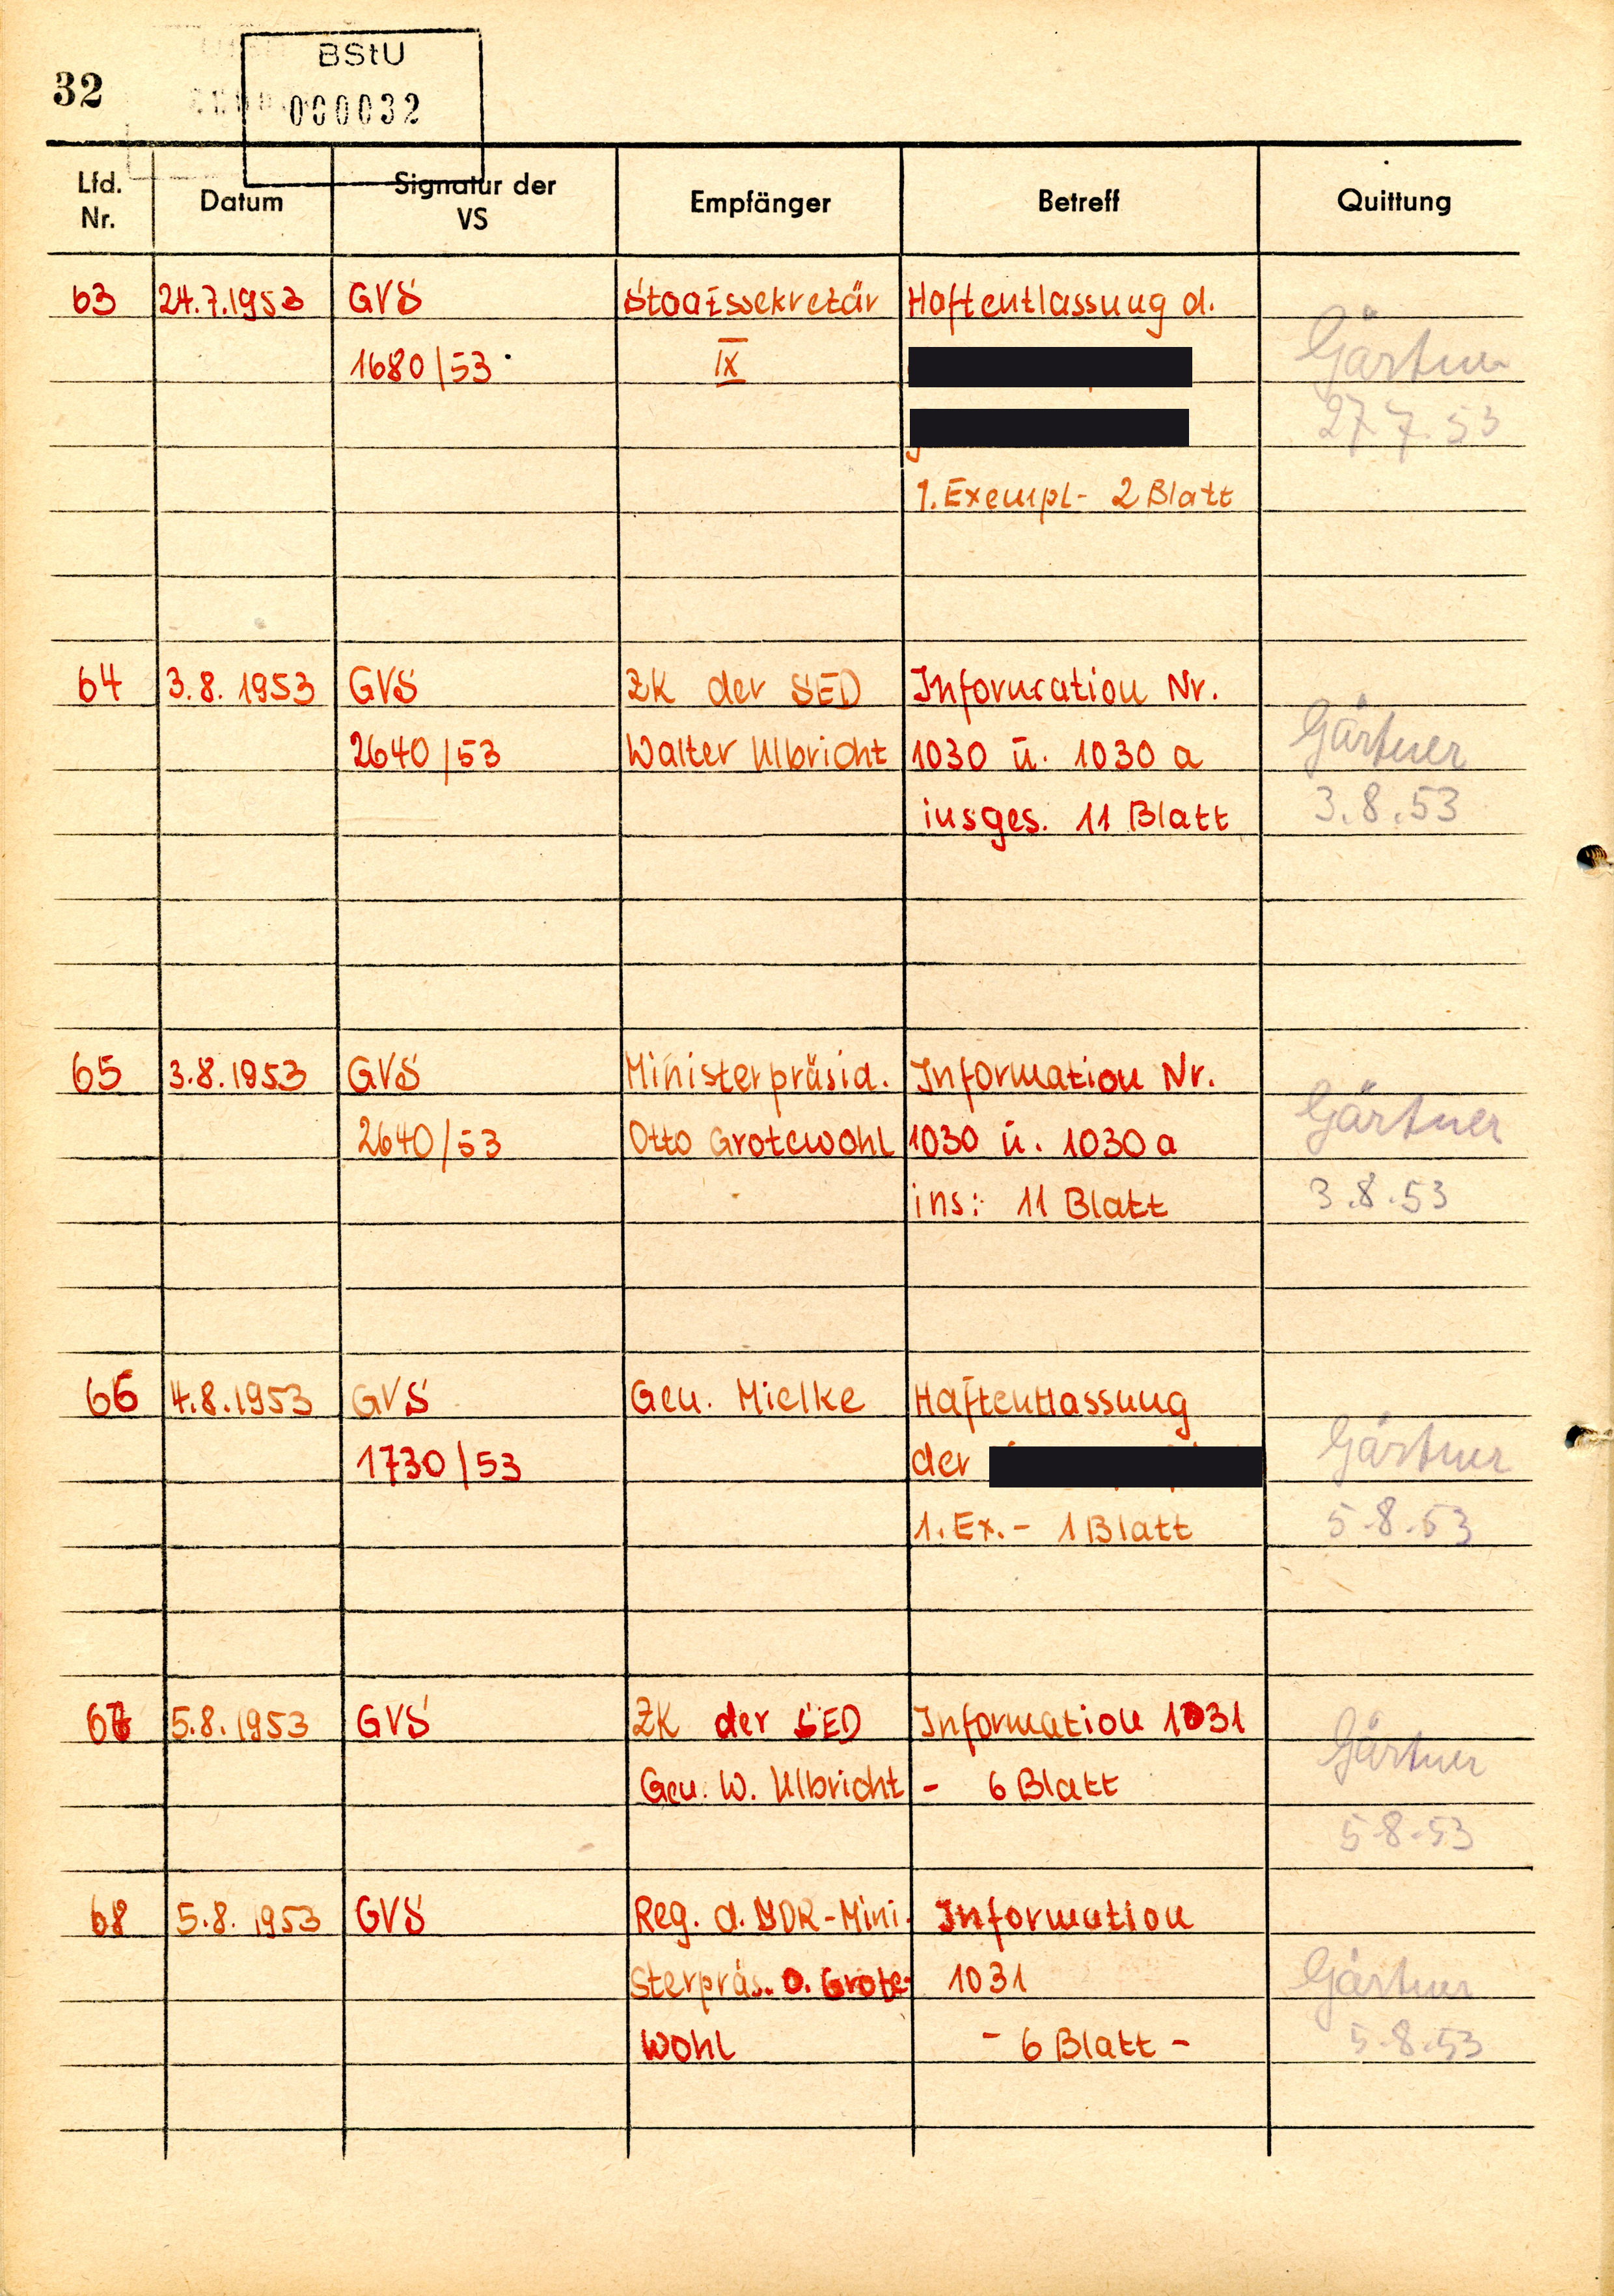 32
BStU
000032
Lfd. Nr.
Datum
Signatur der VS
Empfänger
Betreff
Quittung
63 24.7.1953 GVS Staatssekretär Haftentlassung d.
1680/53 IX Gärtner
27.7.53
1. Exempl- 2 Blatt
64 3.8.1953 GVS ZK der SED Information Nr.
2640/53 Walter Ulbricht 1030 u. 1030 a Gärtner
insges. 11 Blatt 3.8.53
65 3.8.1953 GVS Ministerpräsid. Information Nr.
2640/53 Otto Grotewohl 1030 u. 1030 a Gärtner
ins: 11 Blatt 3.8.53
66 4.8.1953 GVS Gen. Mielke Haftentlassung
1730/53 der Gärtner
1. Ex. - 1 Blatt 5.8.53
67 5.8.1953 GVS ZK der SED Information 1031
Gen. W. Ulbricht - 6 Blatt Gärtner
5.8.53
68 5.8.1953 GVS Reg. d. DDR-Mini- Information
sterpräs. O. Grote- 1031 Gärtner
wohl - 6 Blatt - 5.8.53